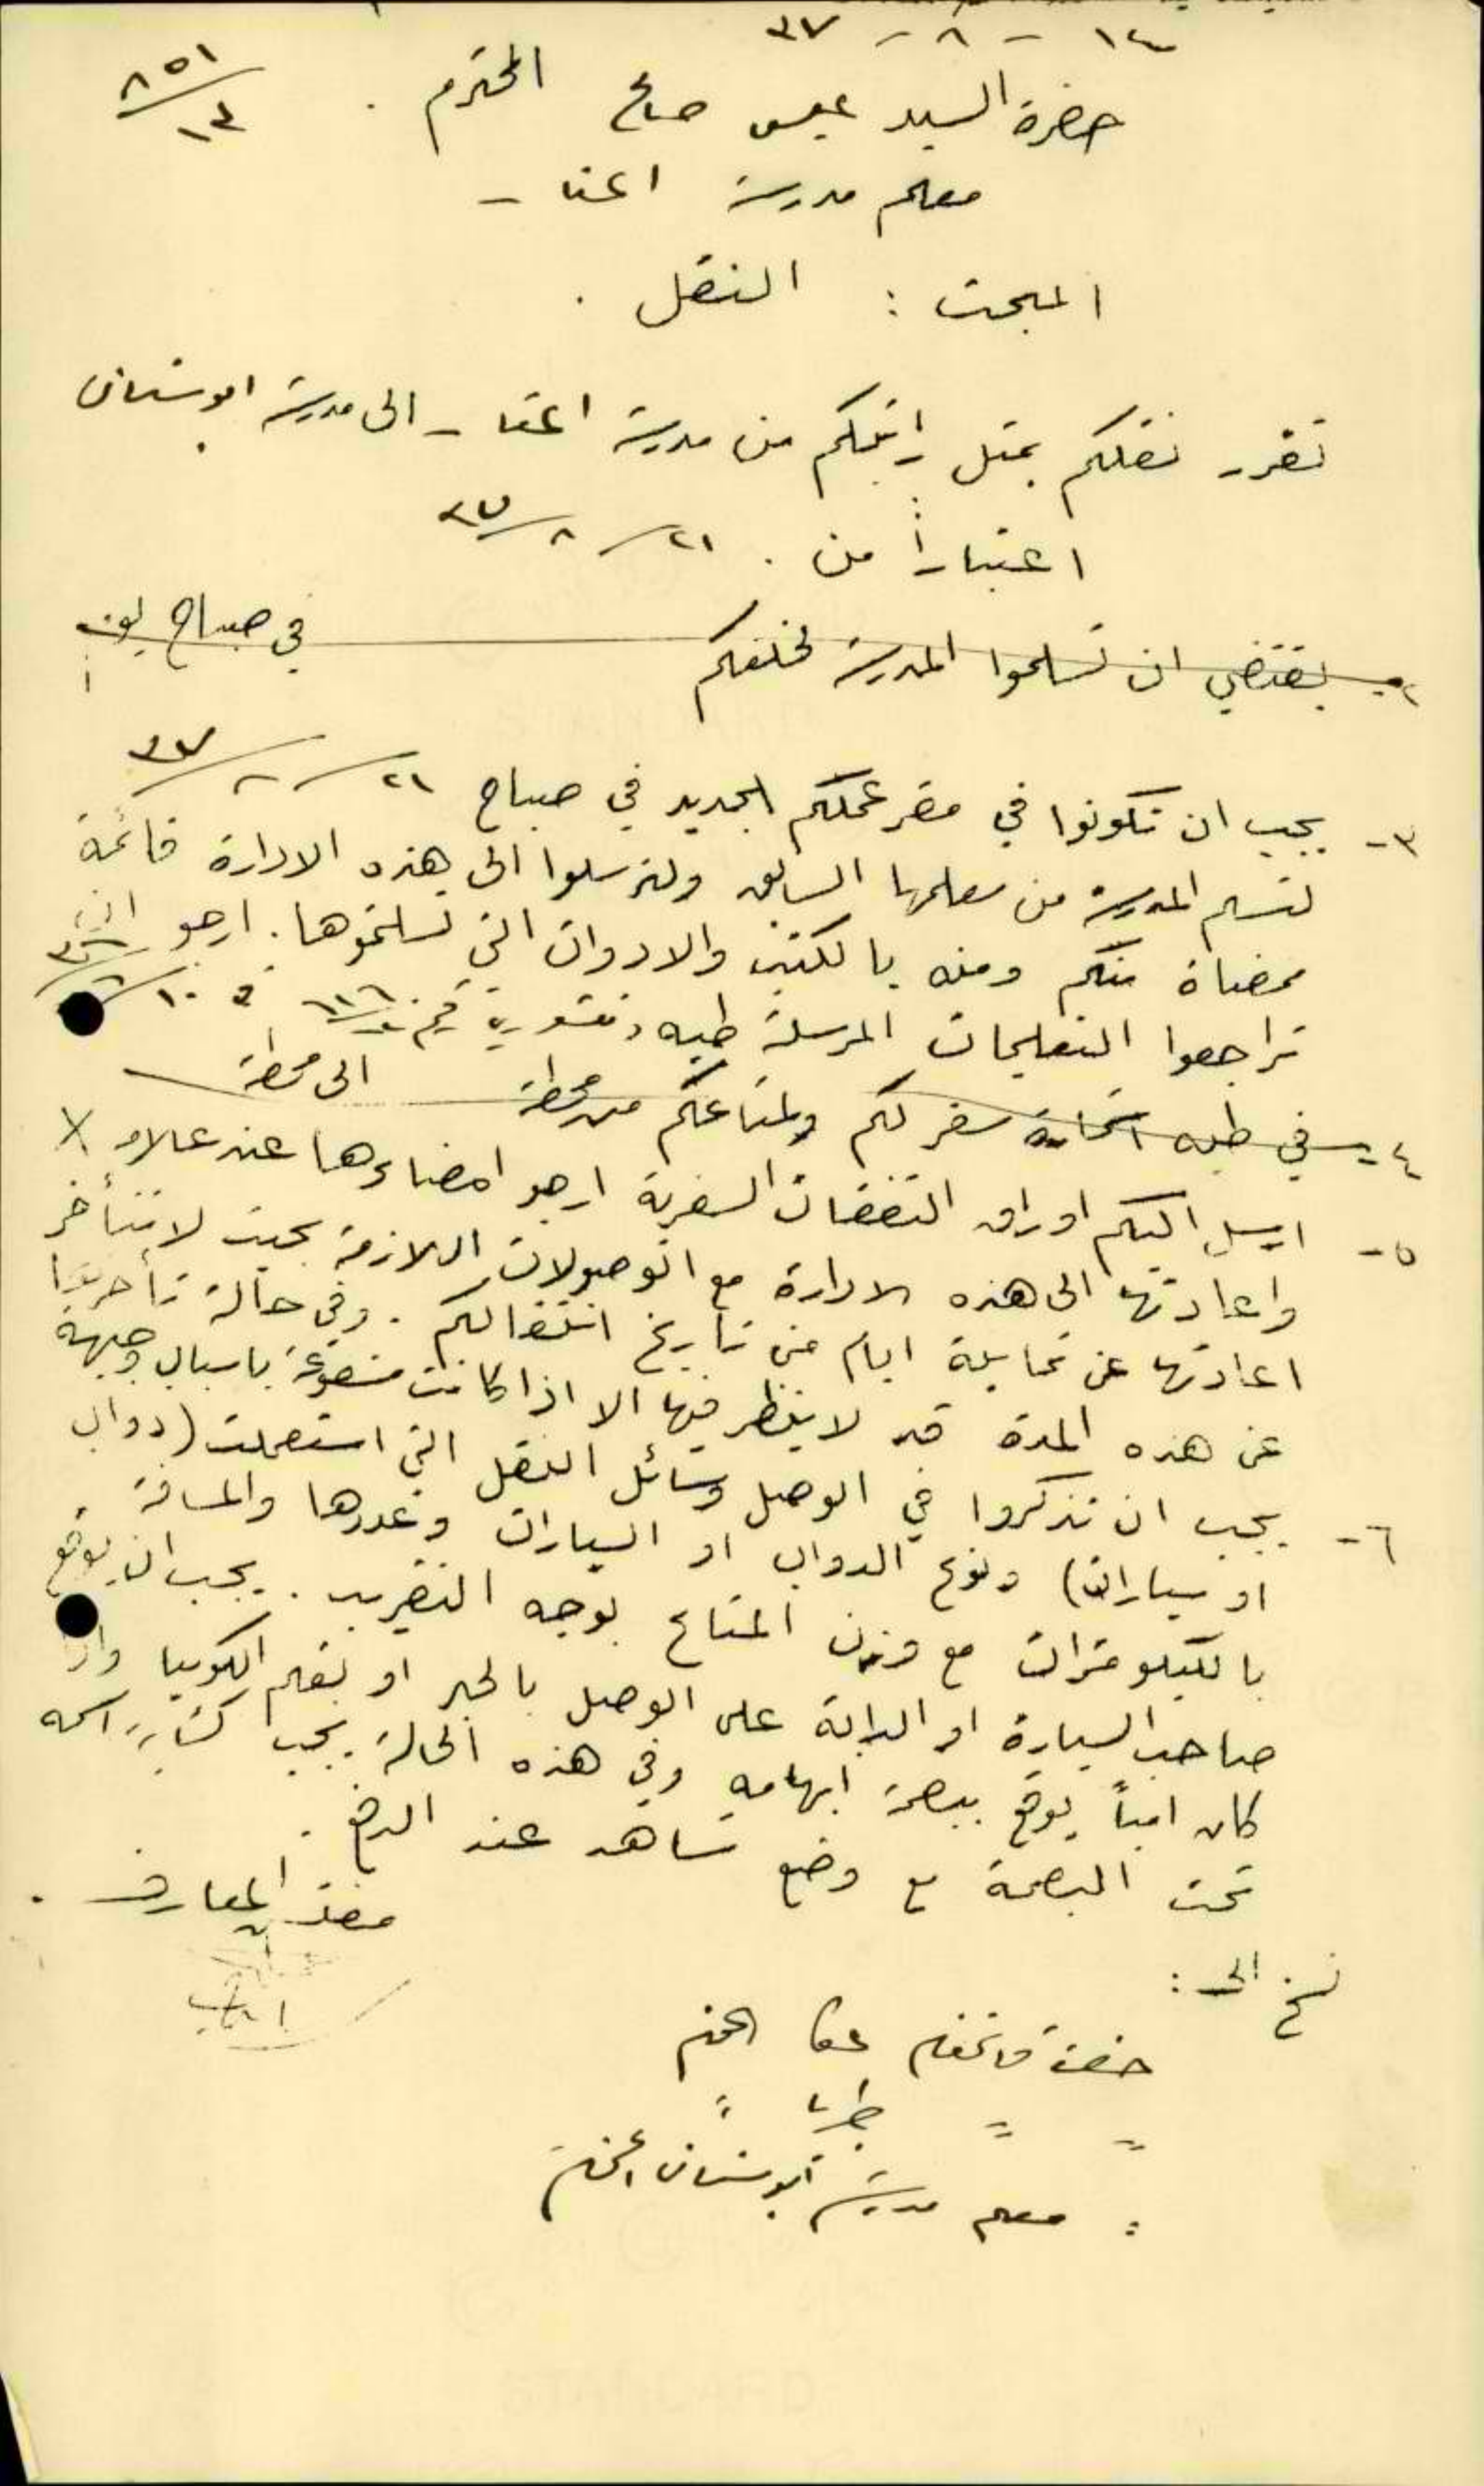 ١٤ - ٨ - ٣٧
٨٥١/١٣
حضرة السيد عيسى صالح المحترم .
معلم مدرسة
المبحث : النقل .
تقرر نقلكم بمثل راتبكم من مدرسة الى مدرسة ابو سنان
اعتباراً من ٢١/٨/٣٧
٢- يقتضي ان تسلموا المدرسة لخلفكم في صباح يوم
٣- يجب ان تكونوا في مقر عملكم الجديد في صباح ٢١/٨/٣٧
لتسلم المدرسة من معلمها السابق ولترسلوا الى هذه الادارة قائمة
ممضاة منكم ومنه بالكتب والادوات التي تسلمتموها . ارجو ان
تراجعوا التعليمات المرسلة طيه
٤- في طيه سفر لكم ولمتاعكم من محطة الى محطة
٥- ارسل اليكم اوراق النفقات السفرية ارجو امضاءها عند علامة X
واعادتها الى هذه الادارة مع الوصولات اللازمة بحيث لا تتأخر
اعادتها عن ثمانية ايام من تاريخ انتقالكم . وفي حالة تأخرها
عن هذه المدة قد لا ينظر فيها الا اذا كانت مشفوعة باسباب وجيهة
٦- يجب ان تذكروا في الوصل وسائل النقل التي استعملت (دواب
او سيارات) ونوع الدواب او السيارات وعددها والمسافة
بالكيلومترات مع وزن المتاع بوجه التقريب . يجب ان يوقع
صاحب السيارة او الدابة على الوصل بالحبر او بقلم الكوبيا واذا
كان امياً يوقع ببصمة ابهامه وفي هذه الحالة يجب كتابة اسمه
تحت البصمة مع وضع شاهد عند الدفع .
مفتش المعارف .
نسخ الى :
حضرة قائمقام عكا المحترم
" " طبريا "
" معلم مدرسة ابو سنان المحترم